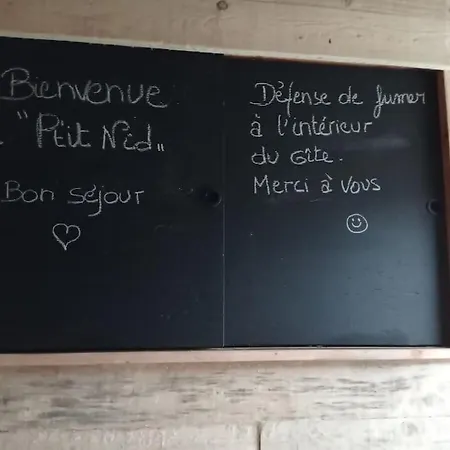 Bienvenue
"P'tit Nid"
Bon séjour
Défense de fumer
à l'intérieur
du Gîte.
Merci à Vous